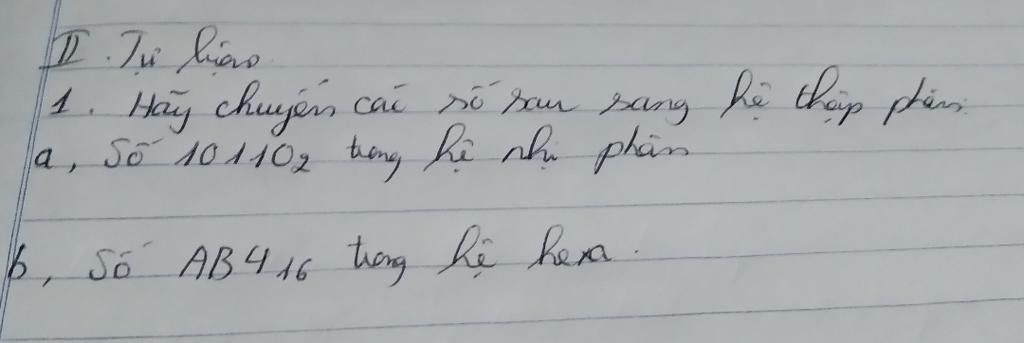 II. Tự luận
1. Hãy chuyển các số sau sang hệ thập phân:
a, Số 10110₂ trong hệ nhị phân
b, Số AB4₁₆ trong hệ hexa.